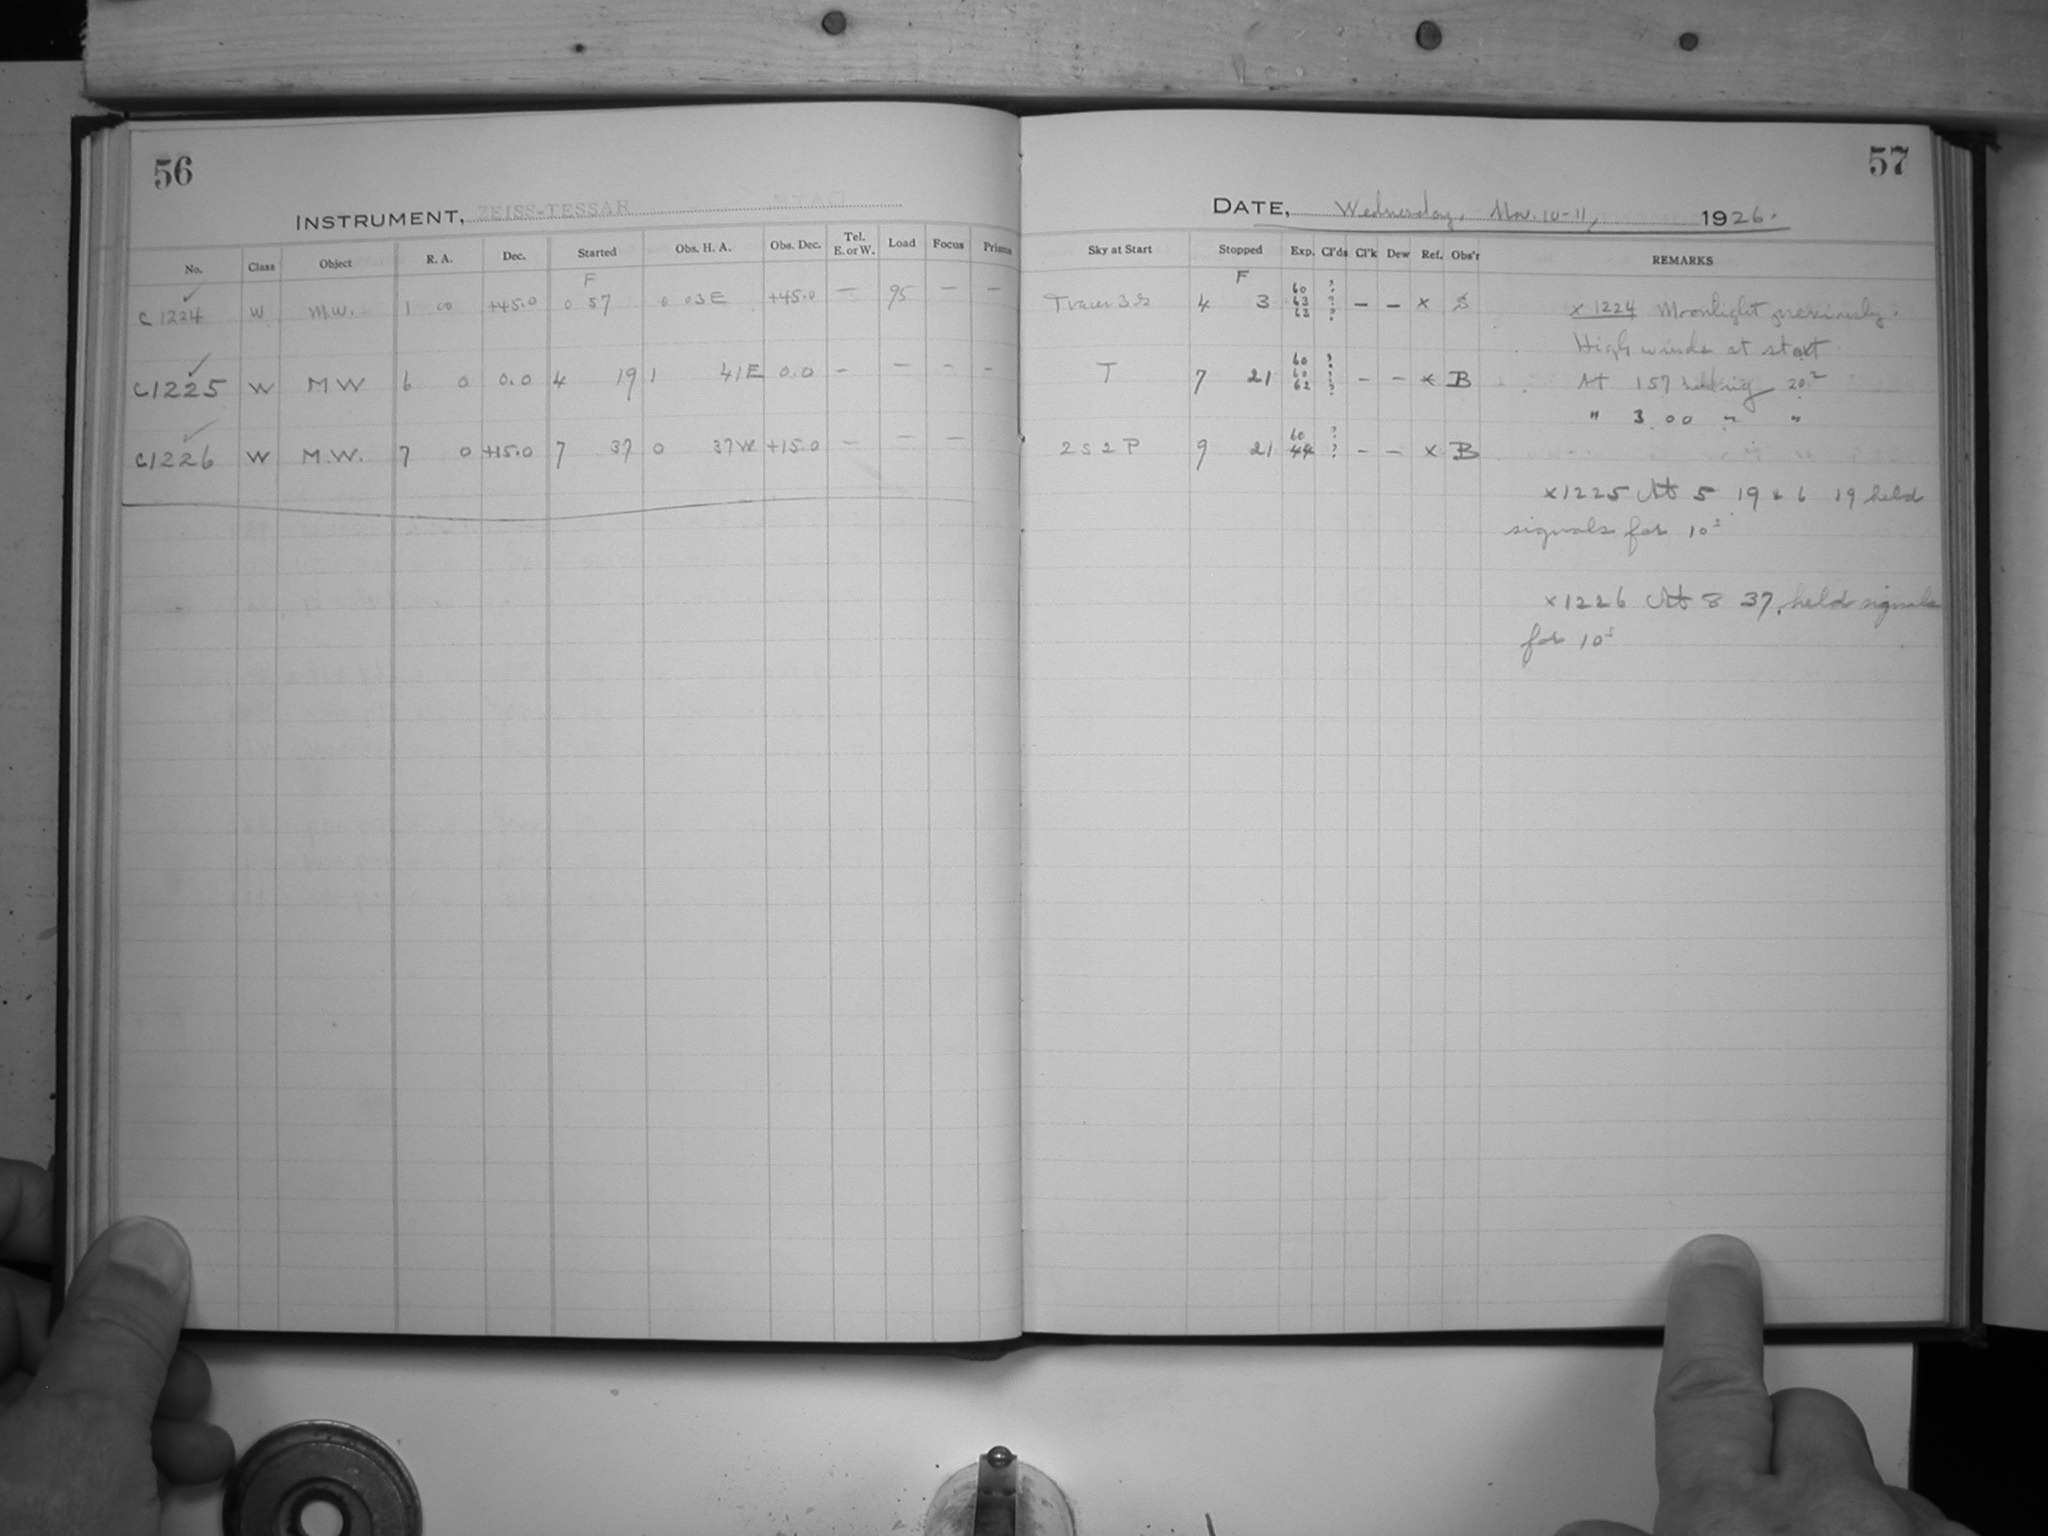 56
INSTRUMENT, ZEISS-TESSAR
No. Class Object R. A. Dec. Started Obs. H. A. Obs. Dec. Tel. E. or W. Load Focus Prisms
F
C1224 W M.W. 1 00 +45.0 0 57 0 03E +45.0 — 95 — —
C1225 W MW 6 0 0.0 4 19 1 41E 0.0 - - - -
C1226 W M.W. 7 0 +15.0 7 37 0 37W +15.0 — — —
57
DATE, Wednesday, Nov. 10-11, 1926.
Sky at Start Stopped Exp. Cl'ds Cl'k Dew Ref. Obs'r REMARKS
F
4 3 60 63 63 ? ? ? — — x S
T 7 21 60 60 62 ? ? ? - - x B
2S2P 9 21 60 44 ? ? - - x B
x 1224 Moonlight previously.
High winds at start
At 1 57 20
" 3 00 " "
x1225 At 5 19 & 6 19 held
signals for 10s
x1226 At 8 37, held signals
for 10s